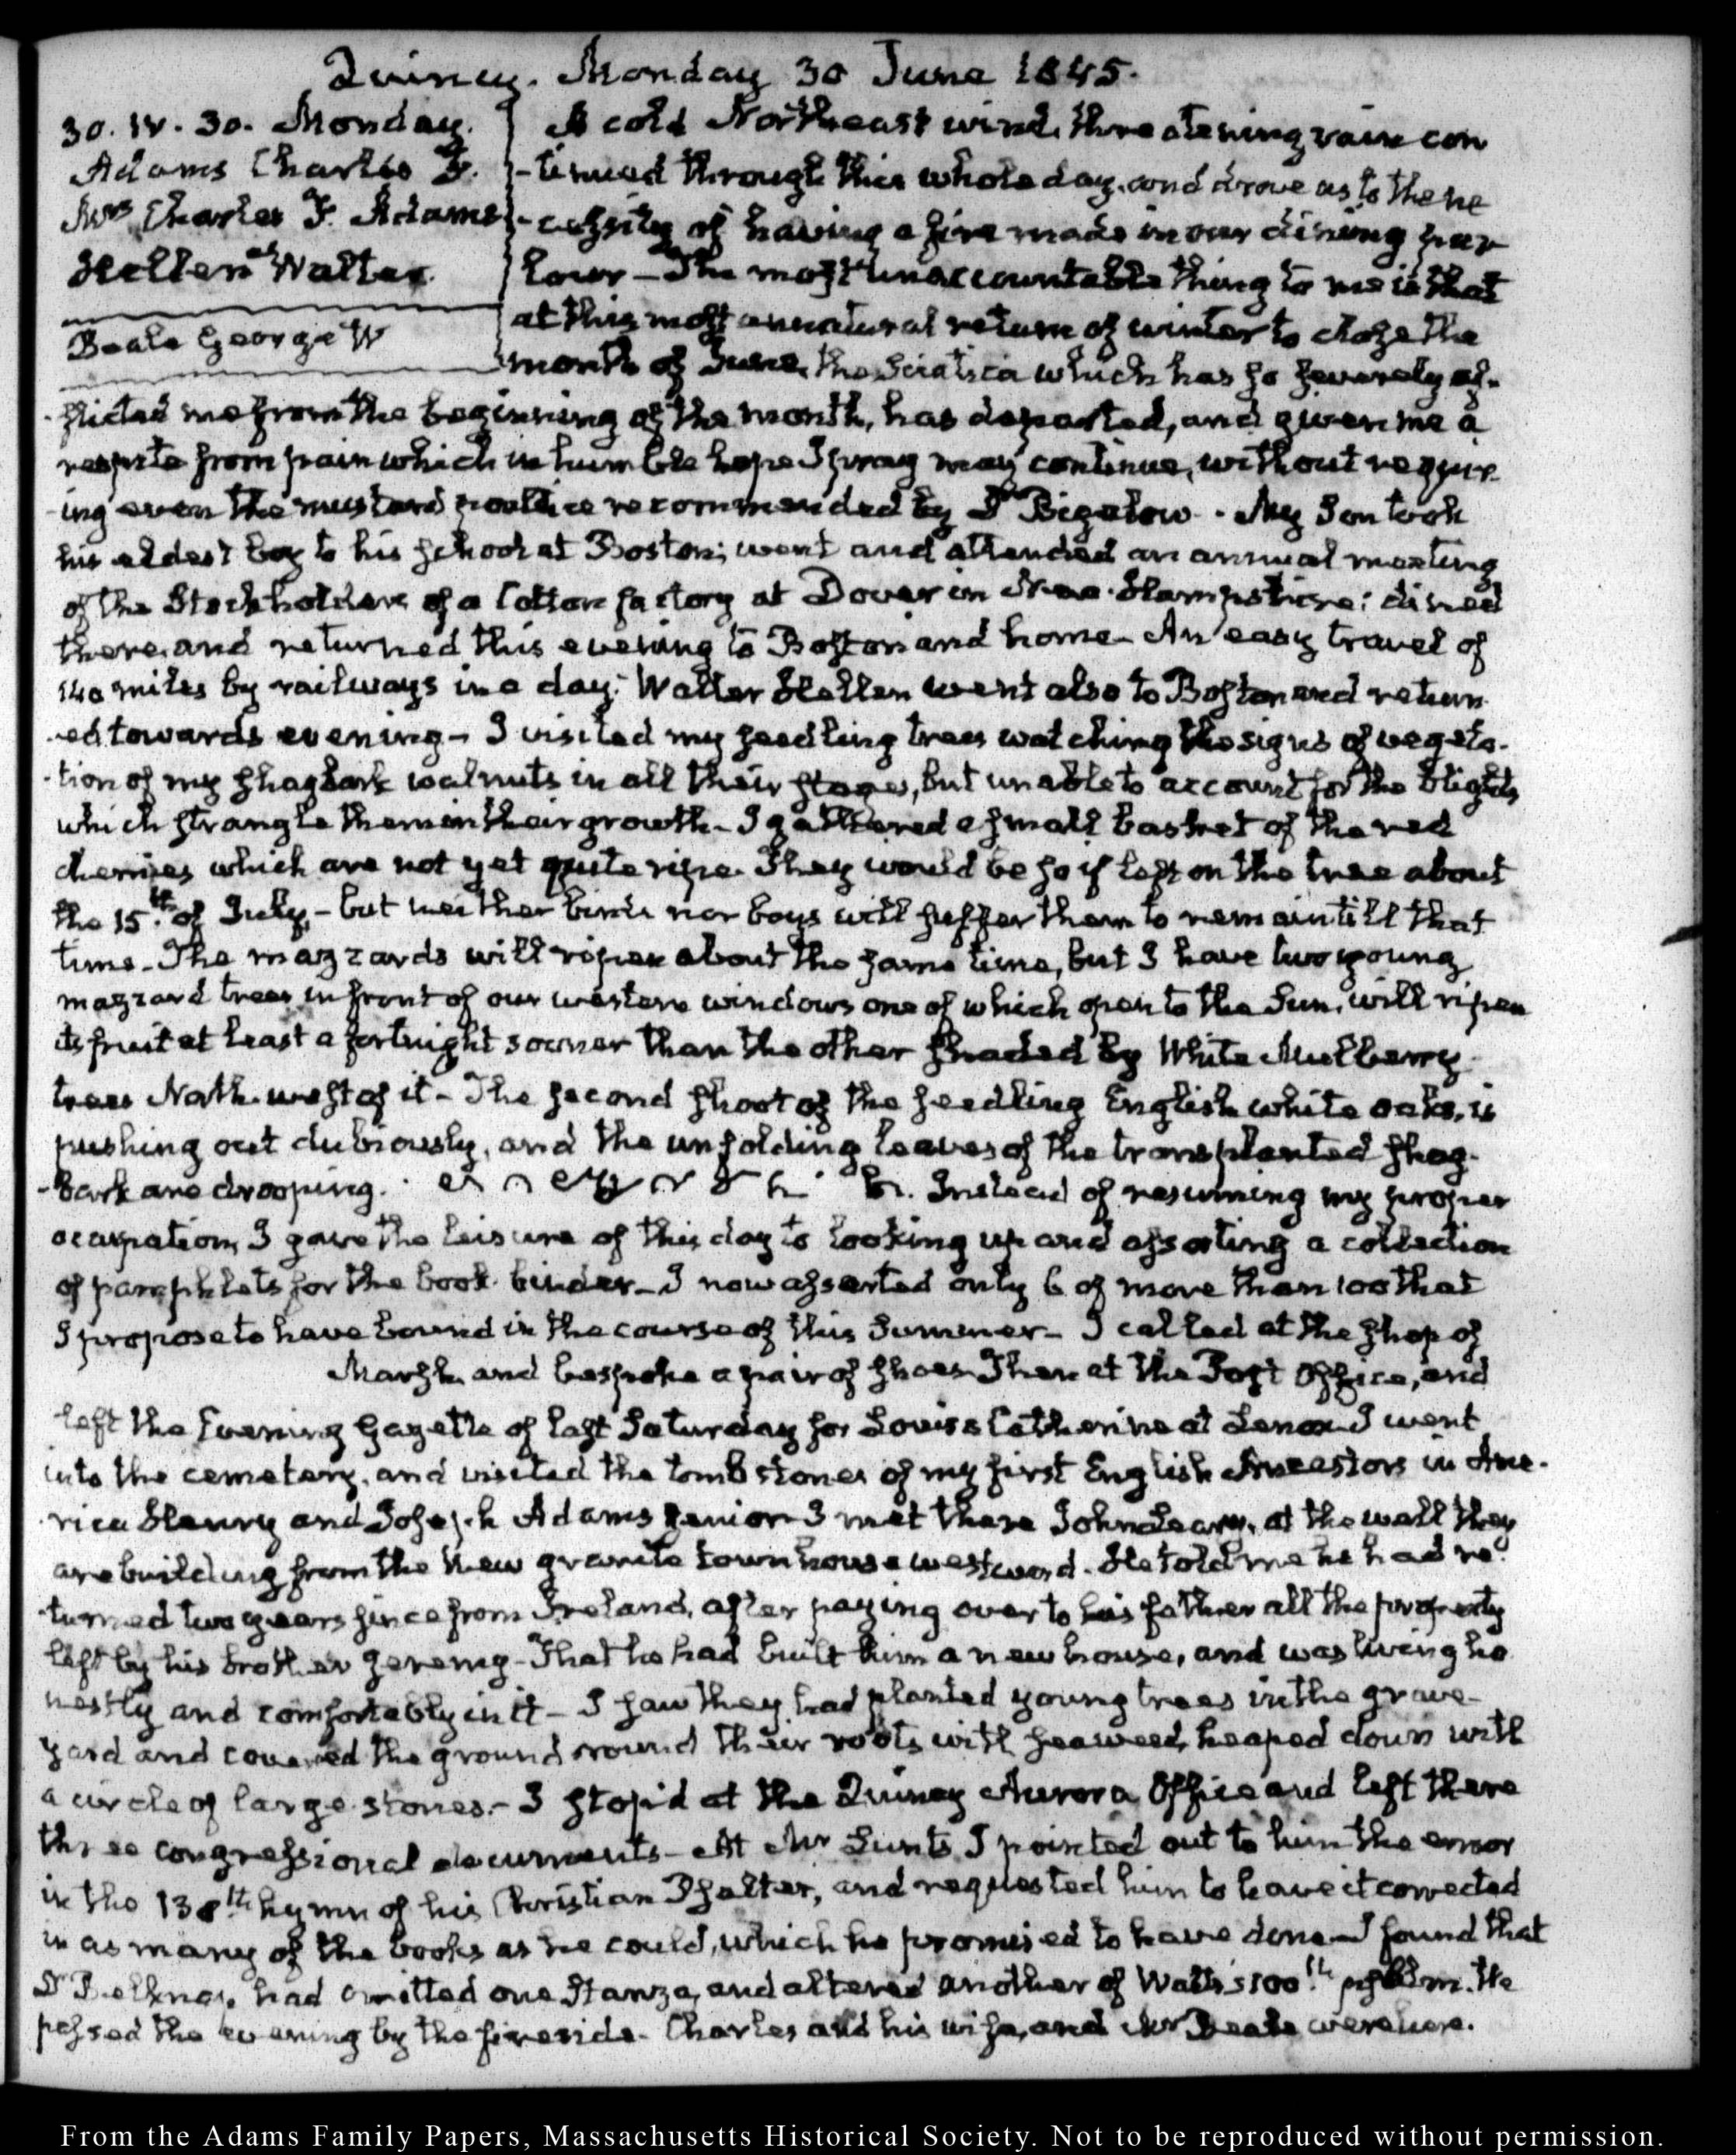 Quincy. Monday 30 June 1845.
30. IV. 30. Monday.
Adams Charles F.
Mrs Charles F. Adams
Hellen Walter
Beale George W
A cold Northeast wind, threatening rain con
-tinued through this whole day, and drove us to the ne
-cessity of having a fire made in our dining par
lour — The most unaccountable thing to me is that
at this most unnatural return of winter to close the
month of June, the Sciatica which has so severely af-
flicted me from the beginning of the month, has departed, and given me a
respite from pain which in humble hope I pray may continue, without requir
-ing even the mustard poultice recommended by Dr Bigelow. - My Son took
his eldest boy to his school at Boston; went and attended an annual meeting
of the Stockholders of a Cotton factory at Dover in New-Hampshire; dined
there, and returned this evening to Boston and home - An easy travel of
140 miles by railways in a day. Walter Hellen went also to Boston and return
-ed towards evening - I visited my seedling trees watching the signs of vegeta-
-tion of my shagbark walnuts in all their stages, but unable to account for the blights
which strangle them in their growth - I gathered a small basket of the red
cherries which are not yet quite ripe. They would be so if left on the tree about
the 15th of July, - but neither birds nor boys will suffer them to remain till that
time - The mazzards will ripen about the same time, but I have two young
mazzard trees in front of our western windows one of which open to the Sun, will ripen
its fruit at least a fortnight sooner than the other shaded by White Mulberry
trees North-west of it - The second shoot of the seedling English white oaks, is
pushing out dubiously, and the unfolding leaves of the transplanted shag-
-bark are drooping. Instead of resuming my proper
occupation, I gave the leisure of this day to looking up and assorting a collection
of pamphlets for the book-binder - I now assorted only 6 of more than 100 that
I propose to have bound in the course of this Summer - I called at the shop of
Marsh, and bespoke a pair of shoes Then at the Post Office, and
left the Evening Gazette of last Saturday for Louisa Catherine at Lenox I went
into the cemetery, and visited the tombstones of my first English Ancestors in Ame-
rica Henry and Joseph Adams senior I met there John at the wall they
are building from the new granite town house westward. He told me he had re-
turned two years since from Ireland, after paying over to his father all the property
left by his brother Jeremy - That he had built him a new house, and was living ho
nestly and comfortably in it - I saw they had planted young trees in the grave-
yard and covered the ground round their roots with seaweed, heaped down with
a circle of large stones - I stop'd at the Quincy Aurora Office and left there
three congressional documents - At Mr Lunt's I pointed out to him the error
in the 138th hymn of his Christian Psalter, and requested him to have it corrected
in as many of the books as he could, which he promised to have done - I found that
Dr Belknap, had omitted one Stanza, and altered another of Watts's 100th psalm. We
passed the evening by the fireside - Charles and his wife, and Mr Beale were here.
From the Adams Family Papers, Massachusetts Historical Society. Not to be reproduced without permission.